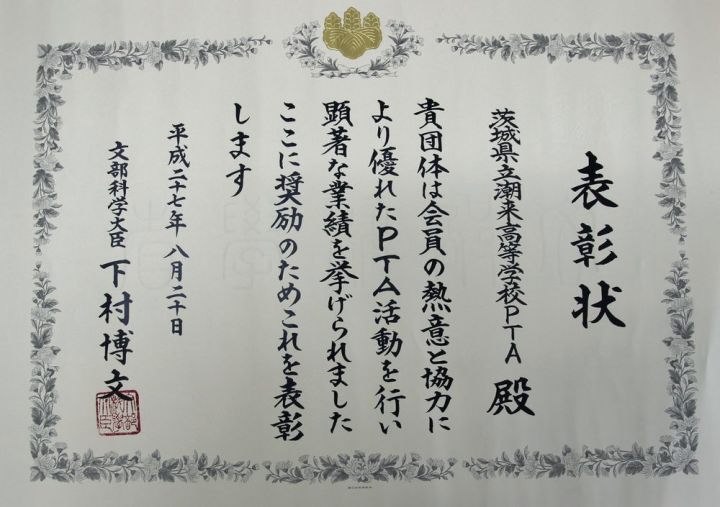 表彰状
茨城県立潮来高等学校PTA 殿
貴団体は会員の熱意と協力に
より優れたPTA活動を行い
顕著な業績を挙げられました
ここに奨励のためこれを表彰
します
平成二十七年 八月二十日
文部科学大臣 下村博文